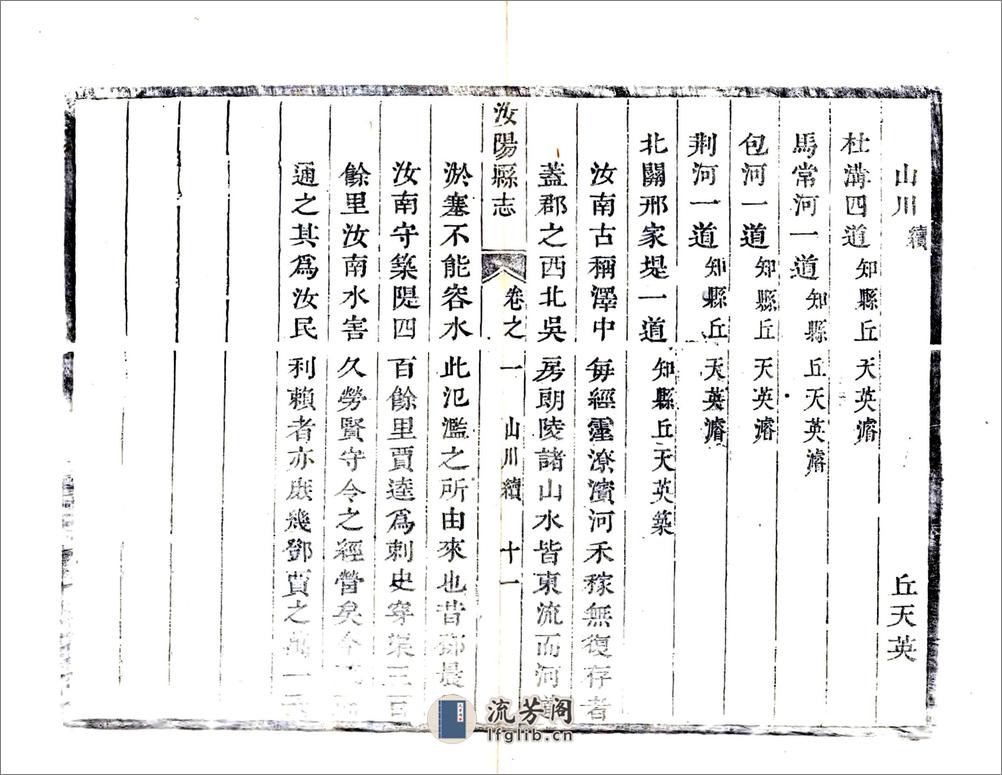 山川續 丘天英
杜溝四道知縣丘天英濬
馬常河一道知縣丘天英濬
包河一道知縣丘天英濬
荆河一道知縣丘天英濬
北關邢家堤一道知縣丘天英築
汝南古稱澤中每經霪潦濱河禾稼無復存者
蓋郡之西北吳房朗陵諸山水皆東流而河
汝陽縣志 卷之一 山川續 十一
淤塞不能容水此氾濫之所由來也昔鄧晨
汝南守築隄四百餘里賈逵爲刺史穿渠二百
餘里汝南水害久勞賢守令之經營矣今
通之其爲汝民利賴者亦庶幾鄧賈之萬一
流芳阁
lfglib.cn